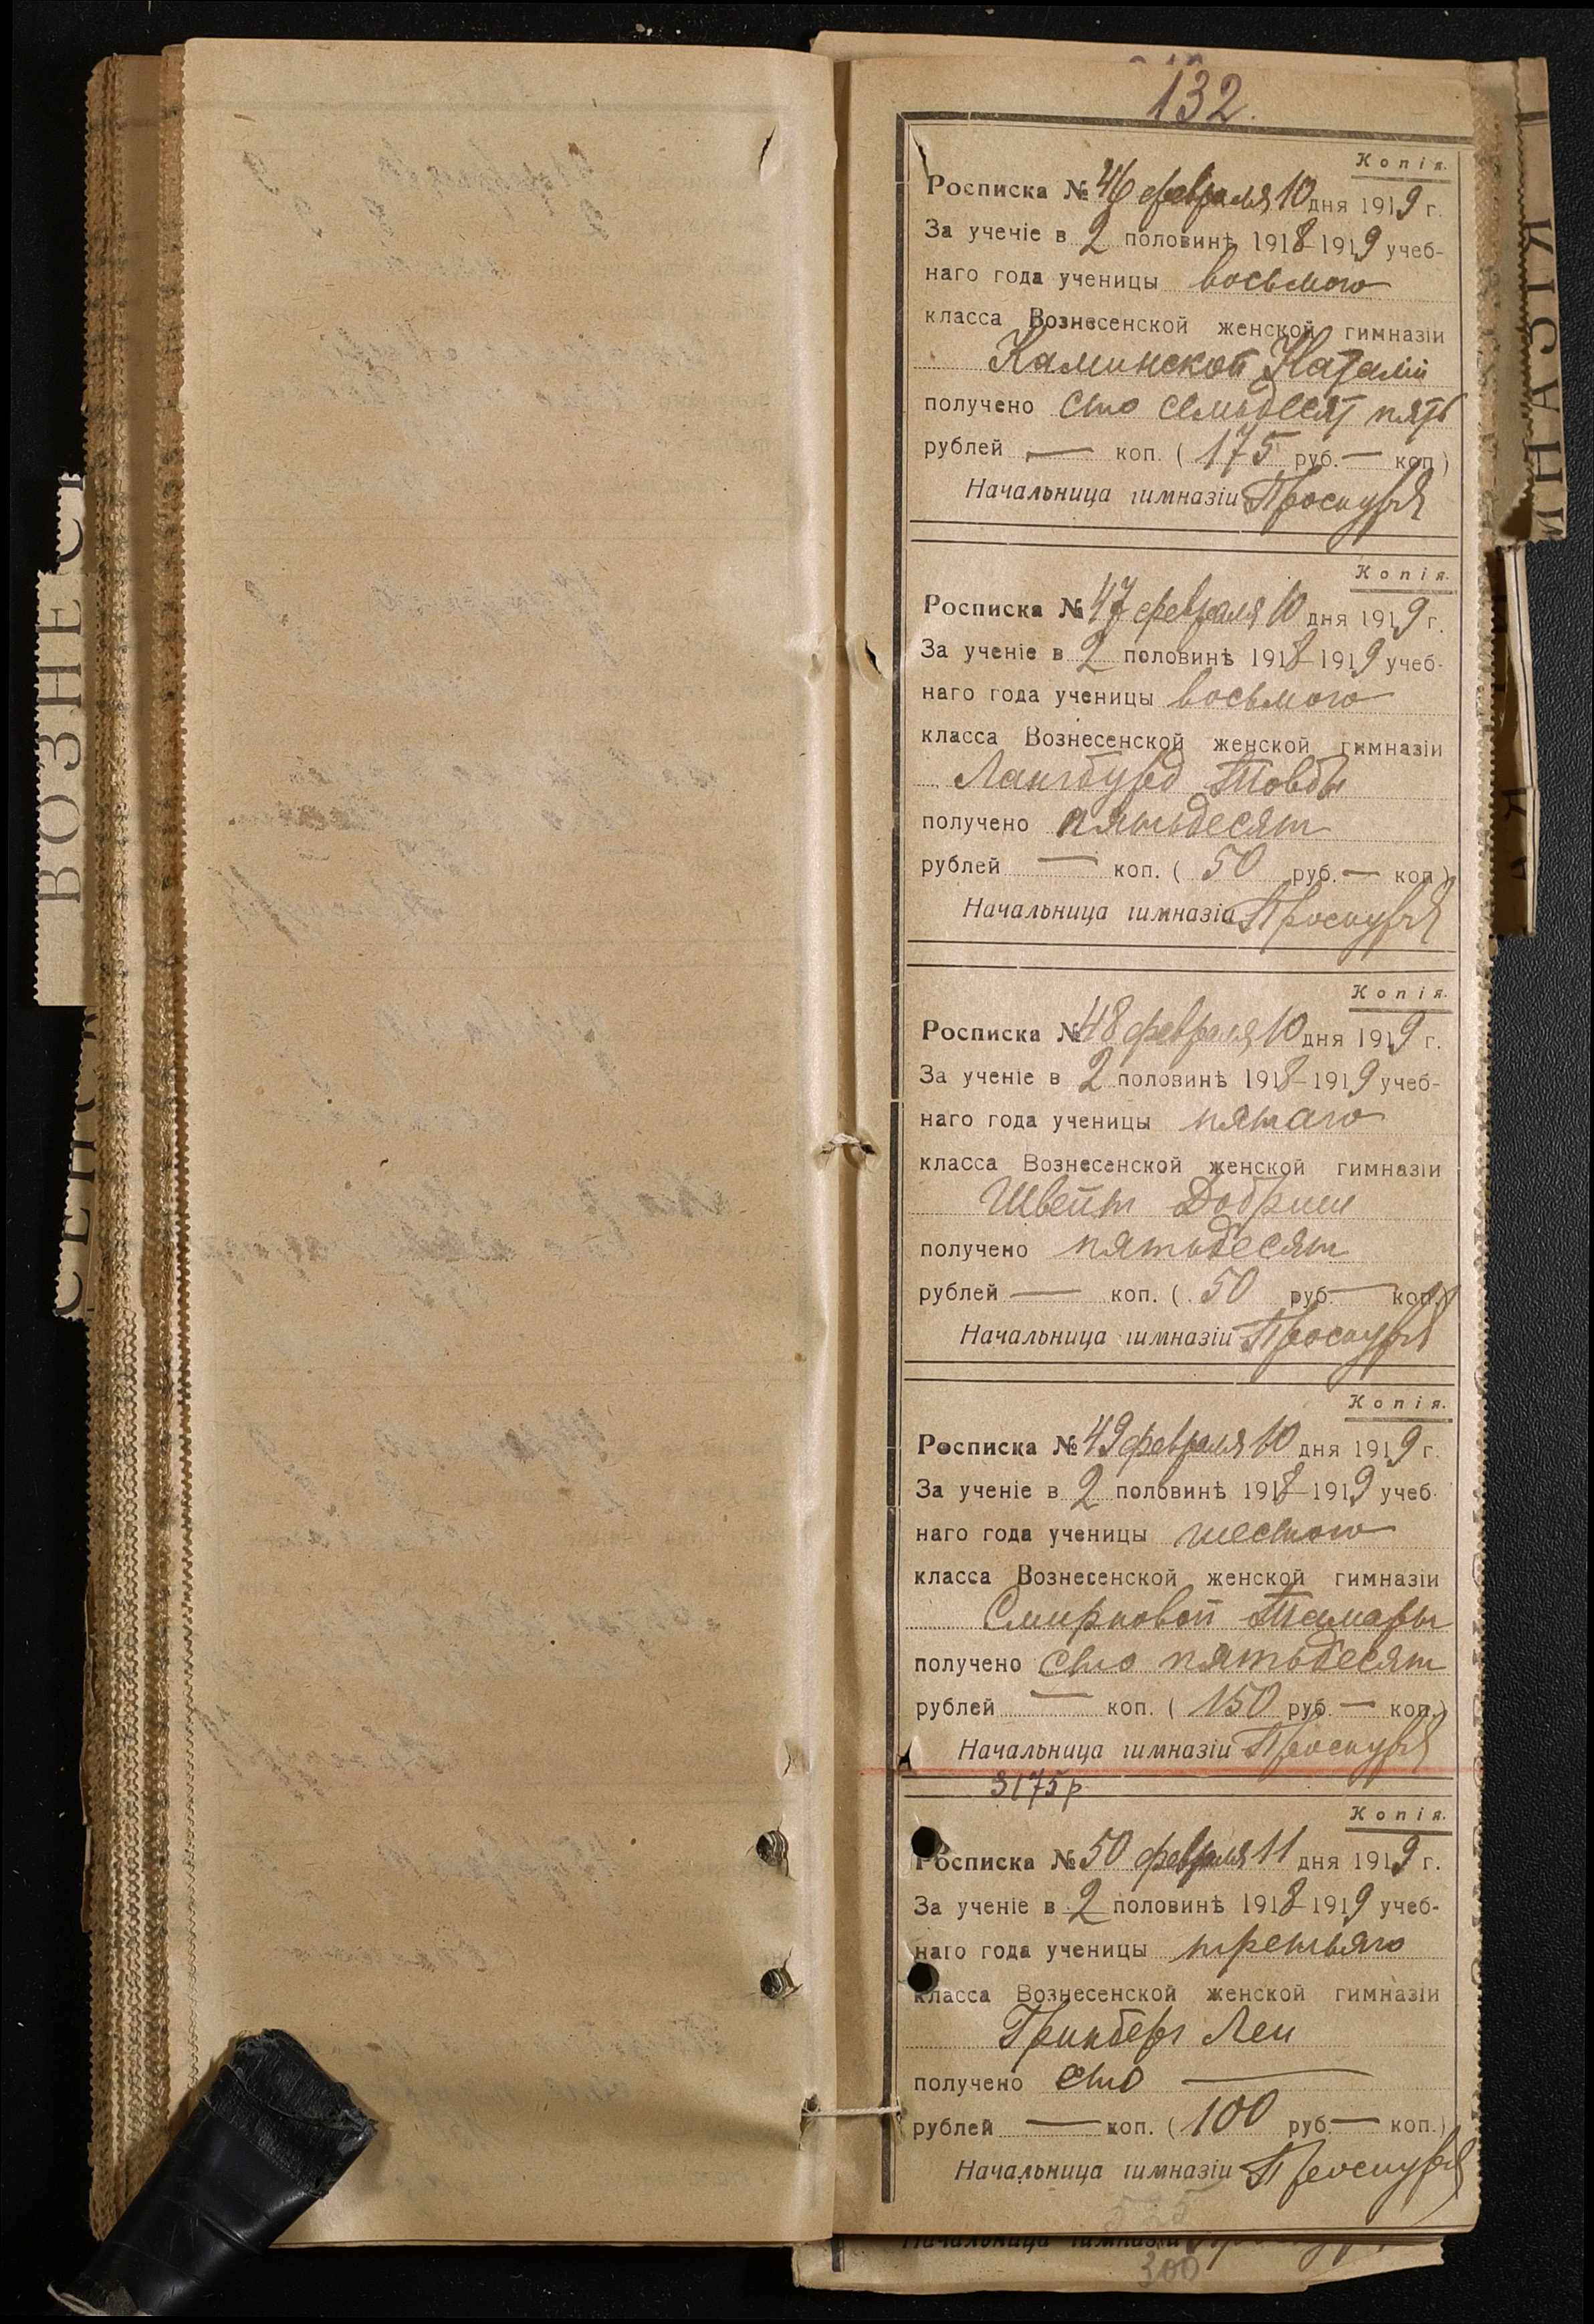 132.
Копія.
Росписка № 46 февраля 10 дня 1919 г.
За ученіе в 2 половинѣ 1918-1919 учеб-
наго года ученицы восьмого
класса Вознесенской женской гимназіи
Каминской Наталіи
получено сто семьдесят пять
рублей — коп. (175 руб. — коп)
Начальница гимназіи
Копія.
Росписка № 47 февраля 10 дня 1919 г.
За ученіе в 2 половинѣ 1918-1919 учеб-
наго года ученицы восьмого
класса Вознесенской женской гимназіи
Лангбурд Товбы
получено пятьдесят
рублей — коп. (50 руб. — коп)
Начальница гимназіи
Копія.
Росписка № 48 февраля 10 дня 1919 г.
За ученіе в 2 половинѣ 1918-1919 учеб-
наго года ученицы пятаго
класса Вознесенской женской гимназіи
Швейт Добриш
получено пятьдесят
рублей — коп. (50 руб. — коп.)
Начальница гимназіи
Копія.
Росписка № 49 февраля 10 дня 1919 г.
За ученіе в 2 половинѣ 1918-1919 учеб-
наго года ученицы шестого
класса Вознесенской женской гимназіи
Смирновой Тамары
получено сто пятьдесят
рублей — коп. (150 руб. — коп.)
Начальница гимназіи
3175 р
Копія.
Росписка № 50 февраля 11 дня 1919 г.
За ученіе в 2 половинѣ 1918-1919 учеб-
наго года ученицы третьяго
класса Вознесенской женской гимназіи
Гринберг Леи
получено сто —
рублей — коп. (100 руб — коп.)
Начальница гимназіи
525
Начальница гимназіи
300
ВОЗНЕС